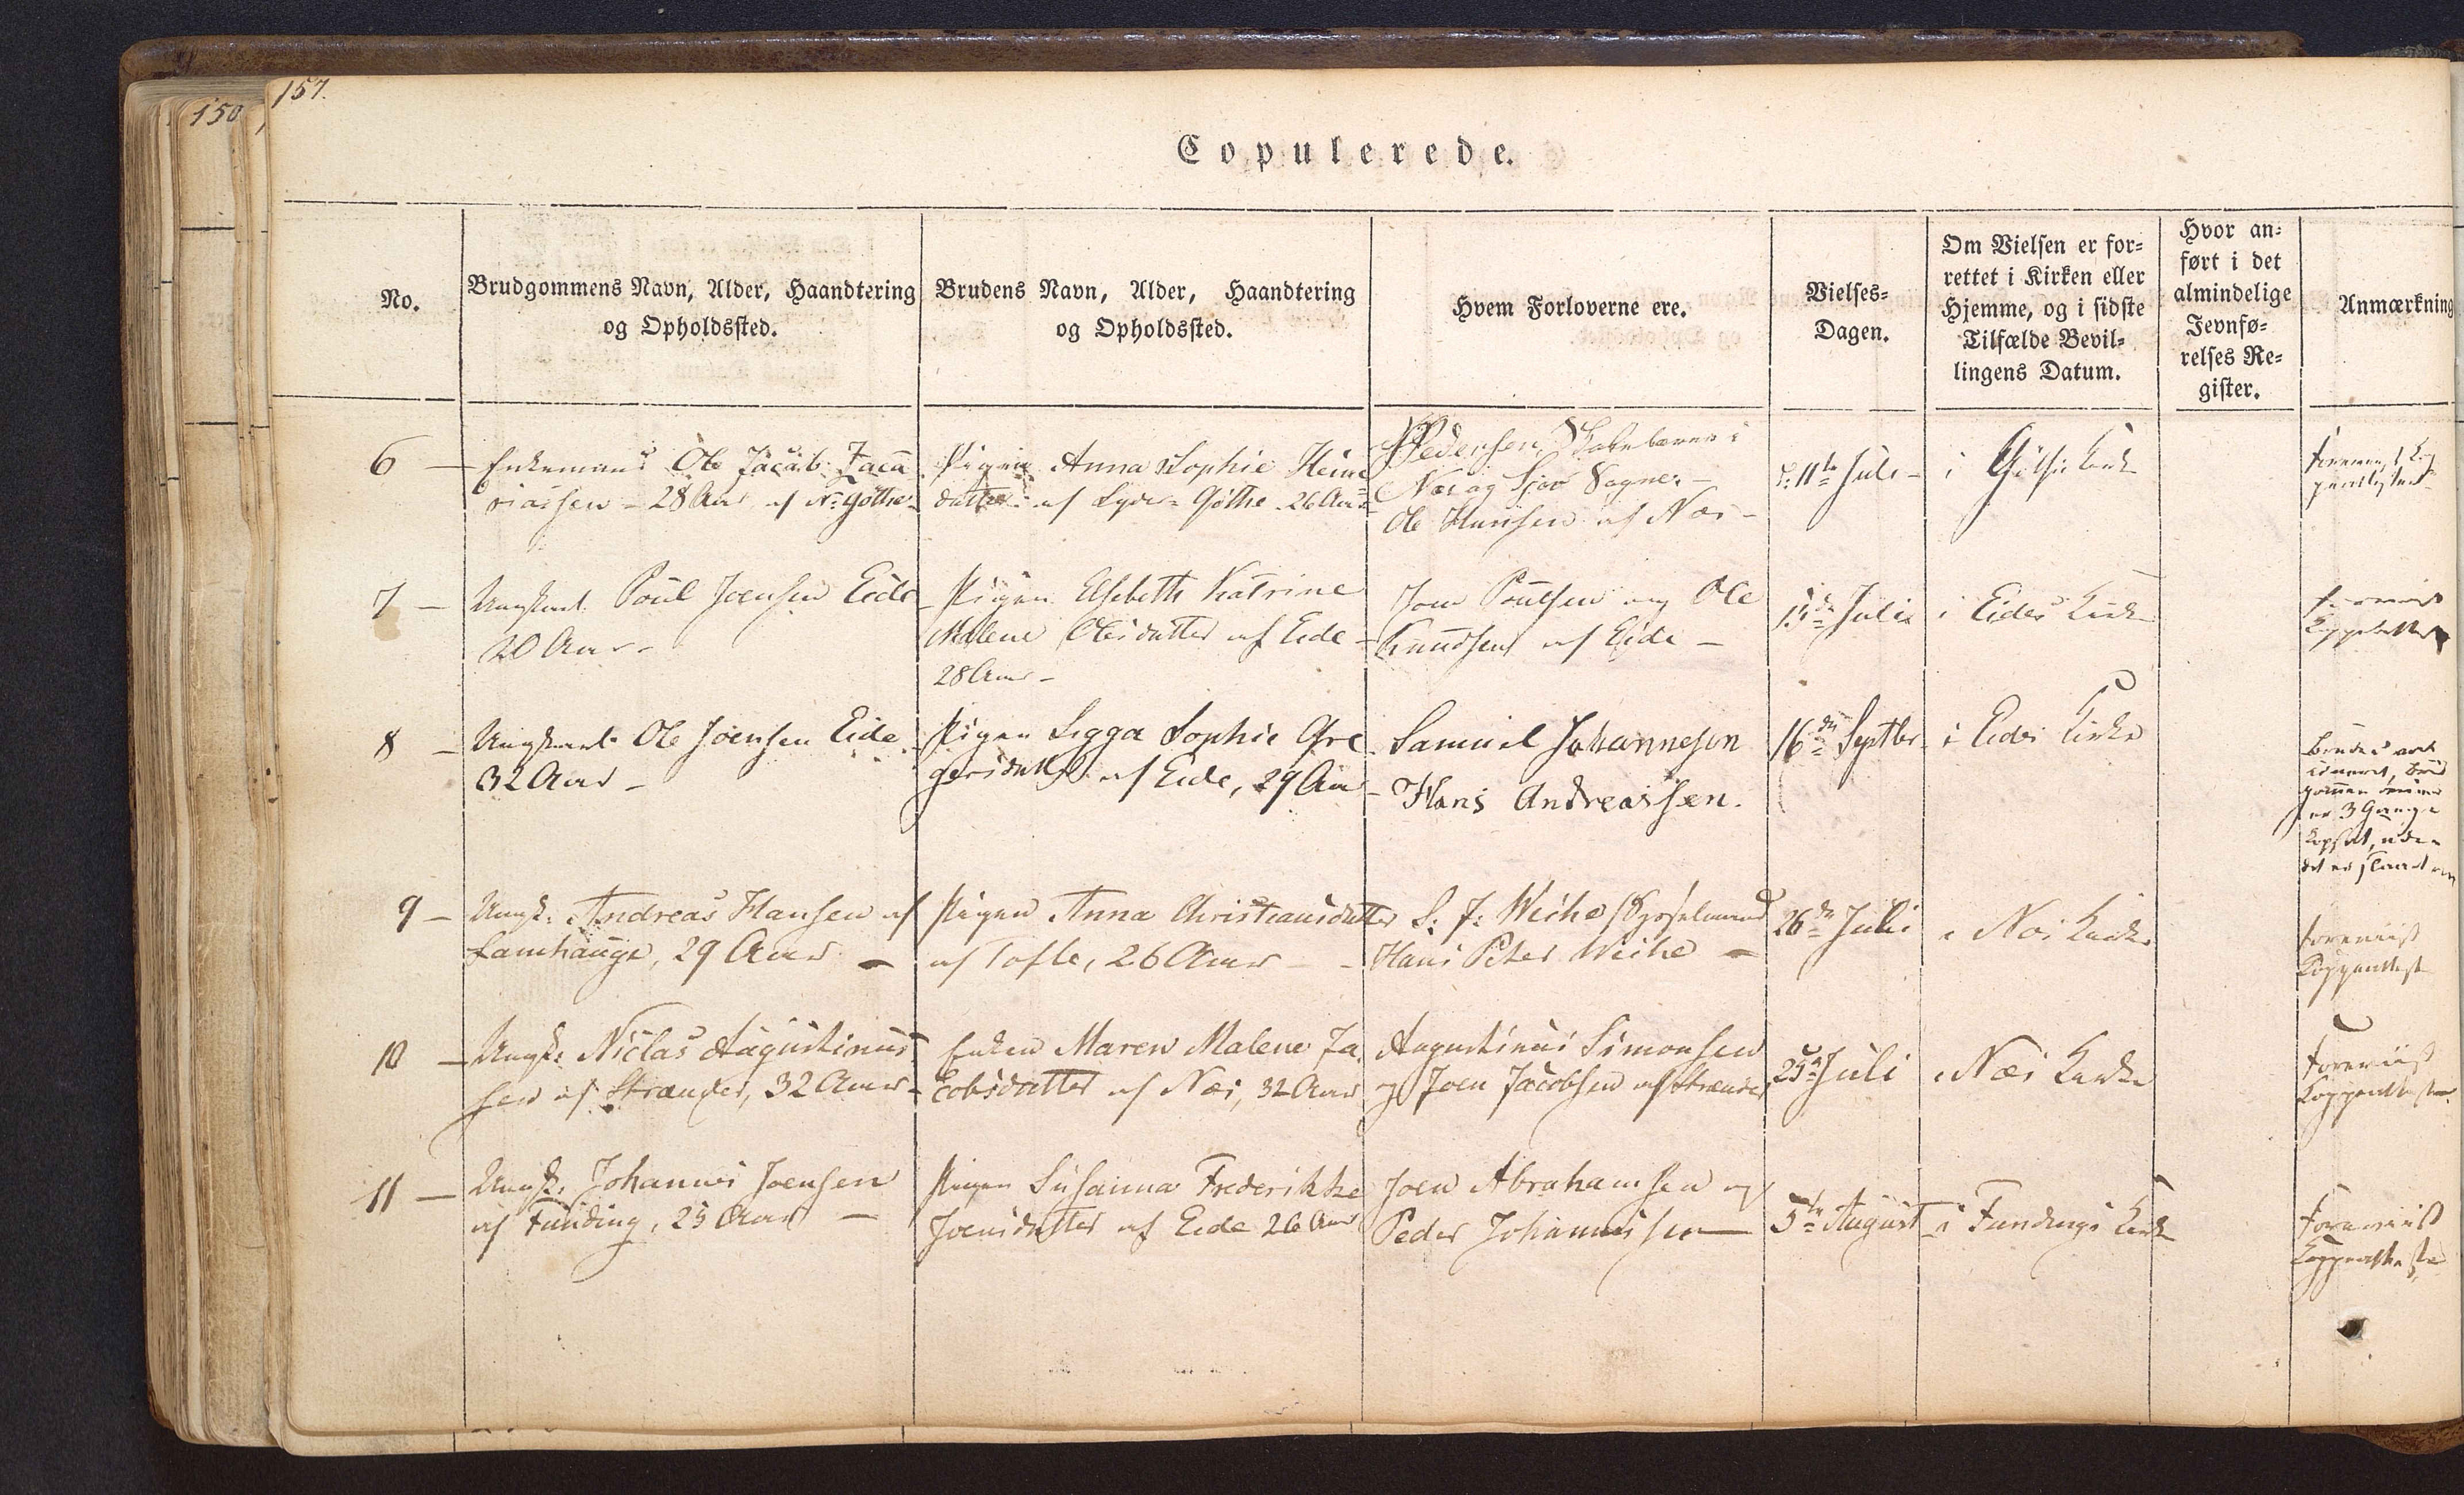 157.
150
Copulerede.
No.
Brudgommens Navn, Alder, Haandtering
og Opholdssted.
Brudens Navn, Alder, Haandtering
og Opholdssted.
Hvem Forloverne ere.
Vielses=
Dagen.
Om Vielsen er for=
rettet i Kirken eller
Hjemme, og i sidste
Tilfælde Bevil=
lingens Datum.
Hvor an=
ført i det
almindelige
Jevnfø=
relses Re=
gister.
Anmærkning
6 —
Enkemand Ole Jacob Zaca
riassen - 28 Aar af N: Gøthe
Pigen Anna Sophie Heine
datter af Gøthe 26 Aar
Pedersen
Næs og Sjov Sogne -
Ole Hansen af Næs -
d: 11te Juli -
i Gøthe Kirke
7 —
Ungkarl Poul Joensen Eide
20 Aar -
Pigen Elsebeth Katrine
Malene Olesdatter af Eide -
28 Aar -
Joen Poulsen og Ole
Knudsen af Eide -
Juli
i Eides Kirke
8 —
Ungkarl Ole Joensen Eide
32 Aar -
Pigen Sigga Sophie Gre
gersdatter af Eide, 29 Aar
Samuel Johannesen
Hans Andreassen.
16de Septbr
i Eides Kirke
er 3 Gange
9 —
Ungk: Andreas Hansen af
Lamhauge, 29 Aar —
Pigen Anna Christiansdatter
af Tofte, 26 Aar -
S: J: Weihe Sysselmand
Hans Peter Weihe —
26de Juli
i Næs Kirke
foreviist
10 —
Ungk: Niclas Augustinus
sen af Strænder, 32 Aar -
Enken Maren Malene Ja
cobsdatter af Næs, 32 Aar
Augustinus Simonsen
og Joen Jacobsen af Strænder
25de Juli
i Næs Kirke
foreviist
11 —
Ungk: Johannes Joensen
af Funding, 25 Aar —
Pigen Susanna Frederikke
Joensdatter af Eide 26 Aar
Joen Abrahamsen og
Peder Johannessen —
5te August
i Fundings Kirke
foreviist